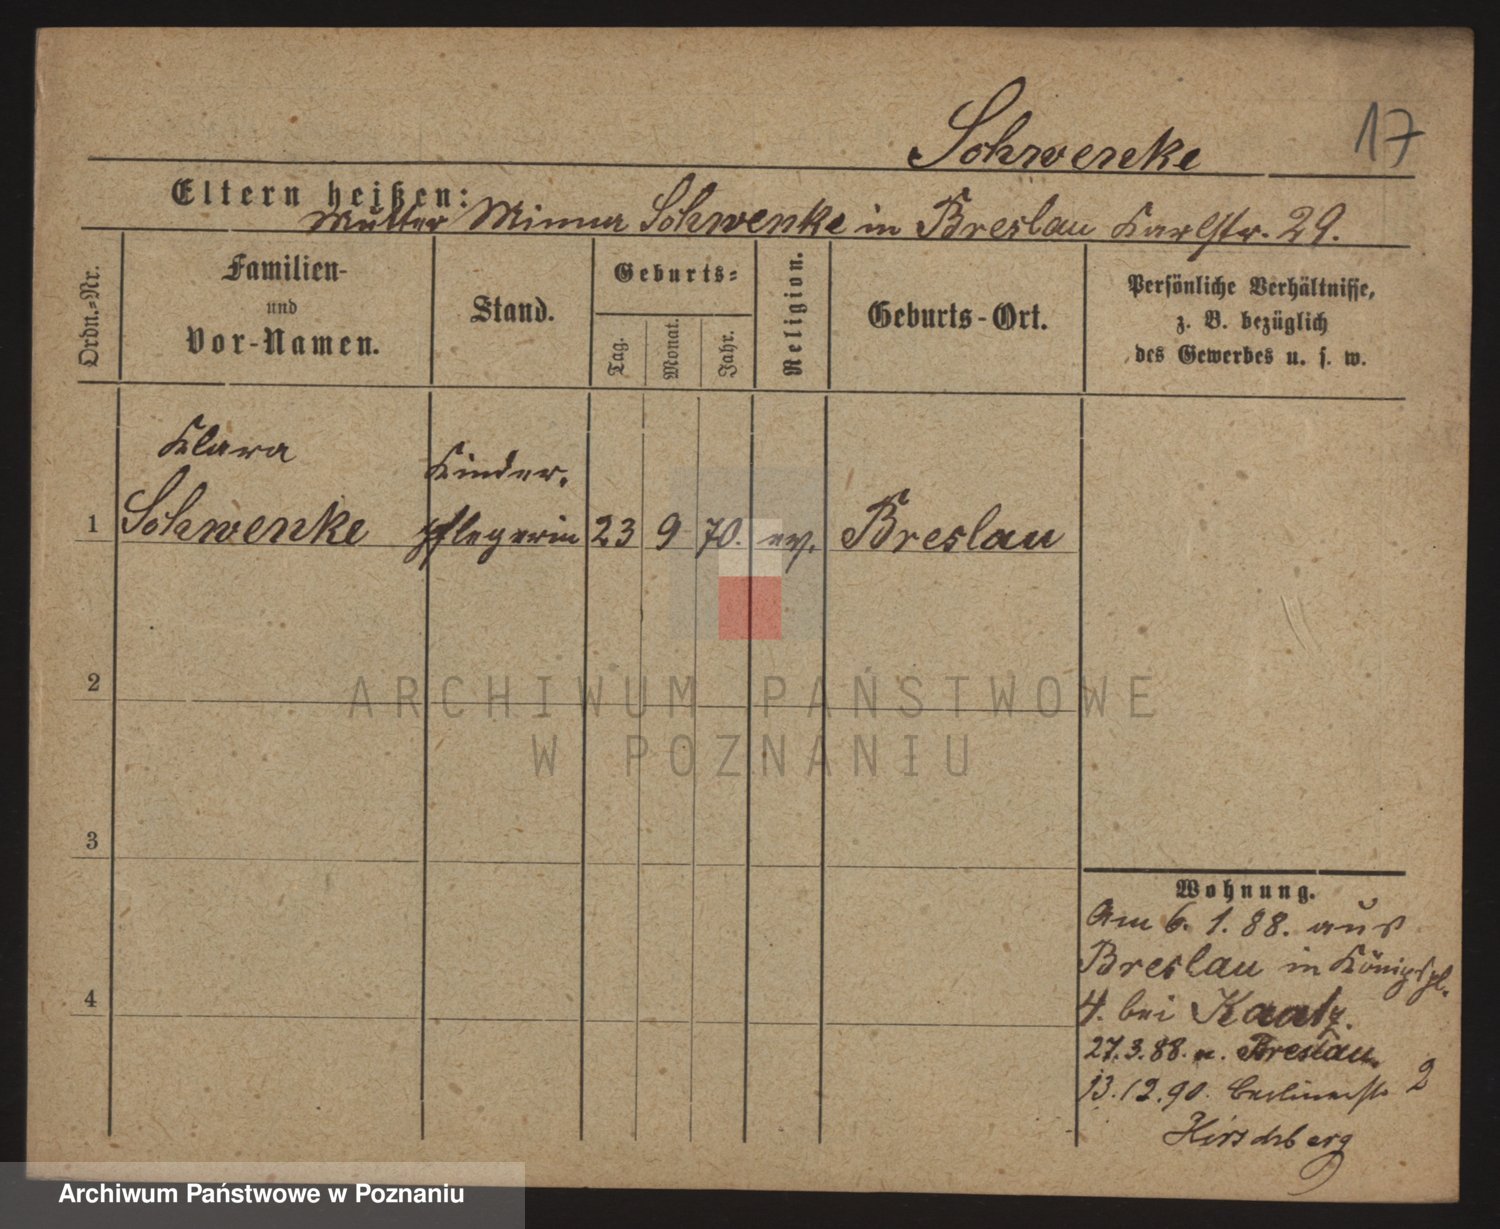 17
Schwenke
Eltern heißen:
Mutter Minna Schwenke in Breslau Karlstr. 29.
Ordn.-Nr.
Familien-
und
Vor-Namen.
Stand.
Geburts-
Tag.
Monat.
Jahr.
Religion.
Geburts-Ort.
Persönliche Verhältnisse,
z. B. bezüglich
des Gewerbes u. s. w.
Klara
Kinder-
1 Schwenke pflegerin 23 9 70. ev. Breslau
2
ARCHIWUM PAŃSTWOWE
W POZNANIU
3
4
Wohnung.
Am 6. 1. 88. aus
Breslau in Königspl.
4. bei Kaatz.
27.3.88. n. Breslau.
13.12.90. Berlinerstr 2
Hirschberg
Archiwum Państwowe w Poznaniu